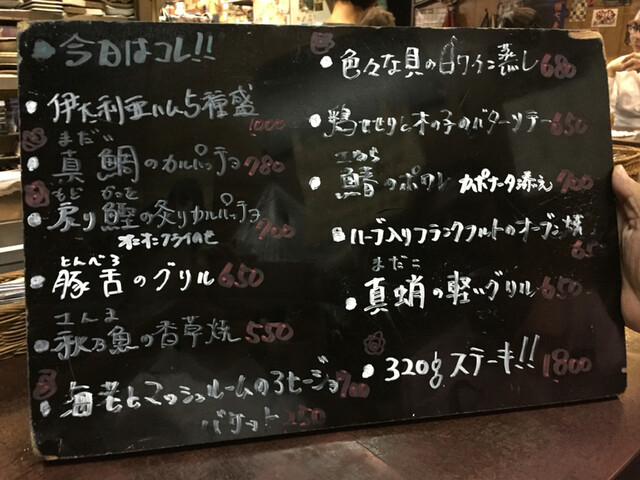 今日はコレ!!
伊太利亜ハム5種盛 1000
まだい
真鯛のカルパッチョ 780
もど かつを
戻り鰹の炙りカルパッチョ 900
オニオンフライのせ
とんべろ
豚舌のグリル 650
さんま
秋刀魚の香草焼 550
海老とマッシュルームのアヒージョ 700
バケット 150
色々な貝の白ワイン蒸し 680
鶏せせりと木の子のバターソテー 650
鰆のポワレ カポナータ添え 700
ハーブ入りフランクフルトのオーブン焼 65
まだこ
真蛸の軽いグリル 650
320gステーキ!! 1800